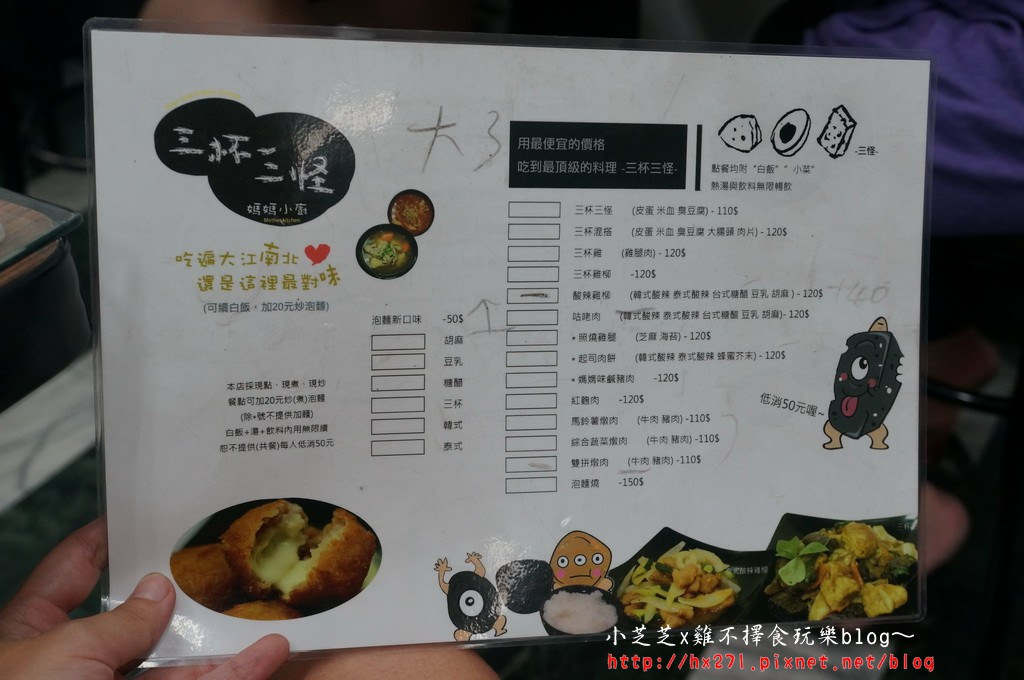 三杯三怪
媽媽小廚
Mother kitchen
吃遍大江南北
還是這裡最對味
(可續白飯，加20元炒泡麵)
大3
用最便宜的價格
吃到最頂級的料理 -三杯三怪-
-三怪-
點餐均附 "白飯" " 小菜"
熱湯與飲料無限暢飲
三杯三怪 (皮蛋 米血 臭豆腐) - 110$
三杯混搭 (皮蛋 米血 臭豆腐 大腸頭 肉片) - 120$
三杯雞 (雞腿肉) - 120$
三杯雞柳 -120$
酸辣雞柳 (韓式酸辣 泰式酸辣 台式糖醋 豆乳 胡麻 ) - 120$
+40
咕咾肉 (韓式酸辣 泰式酸辣 台式糖醋 豆乳 胡麻)- 120$
* 照燒雞腿 (芝麻 海苔) - 120$
* 起司肉餅 (韓式酸辣 泰式酸辣 蜂蜜芥末) - 120$
* 媽媽味鹹豬肉 -120$
紅麴肉 -120$
馬鈴薯燉肉 (牛肉 豬肉) -110$
綜合蔬菜燉肉 (牛肉 豬肉) -110$
雙拼燉肉 (牛肉 豬肉) -110$
泡麵燒 -150$
泡麵新口味 -50$
胡麻
豆乳
糖醋
三杯
韓式
泰式
本店採現點、現煮、現炒
餐點可加20元炒(煮)泡麵
(除*號不提供加麵)
白飯+湯+飲料內用無限續
恕不提供(共餐)每人低消50元
低消50元喔~
小芝芝x雞不擇食玩樂blog～
http://hx271.pixnet.net/blog